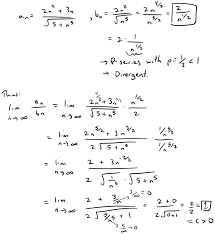 aₙ = (2n² + 3n) / √(5 + n⁵) , bₙ = 2n² / √n⁵ = 2n^(4/2) / n^(5/2) = 2 / n^(1/2)
= 2 · 1 / n^(1/2)
→ P-series with p = 1/2 < 1
→ Divergent.
Thus:
lim n→∞ aₙ / bₙ = lim n→∞ (2n² + 3n) / √(5 + n⁵) · n^(1/2) / 2
= lim n→∞ (2n^(5/2) + 3n^(3/2)) / (2√(5 + n⁵)) · (1/n^(5/2)) / (1/n^(5/2))
= lim n→∞ (2 + 3n^(-2/2)) / (2 · √(1/n⁵) · √(5 + n⁵))
= lim n→∞ (2 + 3/n) / (2√(5/n⁵ + 1)) = (2 + 0) / (2√(0 + 1)) = 2/2 = 1
= c > 0